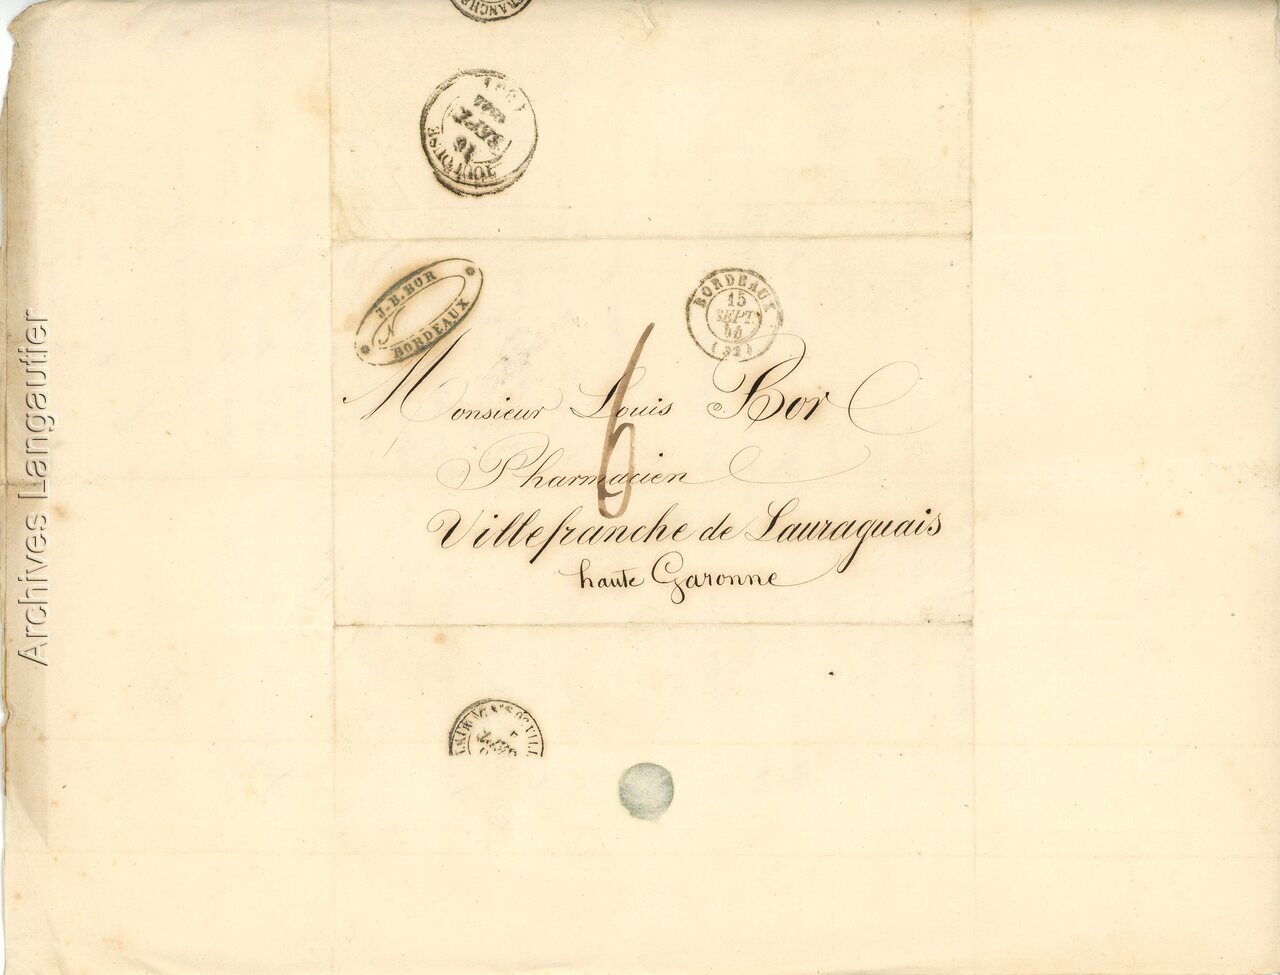 TOULOUSE
16
SEPT.
J.-B. BOR
BORDEAUX
BORDEAUX
15
SEPT.
44
(32)
6
Monsieur Louis Bor
Pharmacien
Villefranche de Lauraguais
haute Garonne
Archives Langautier